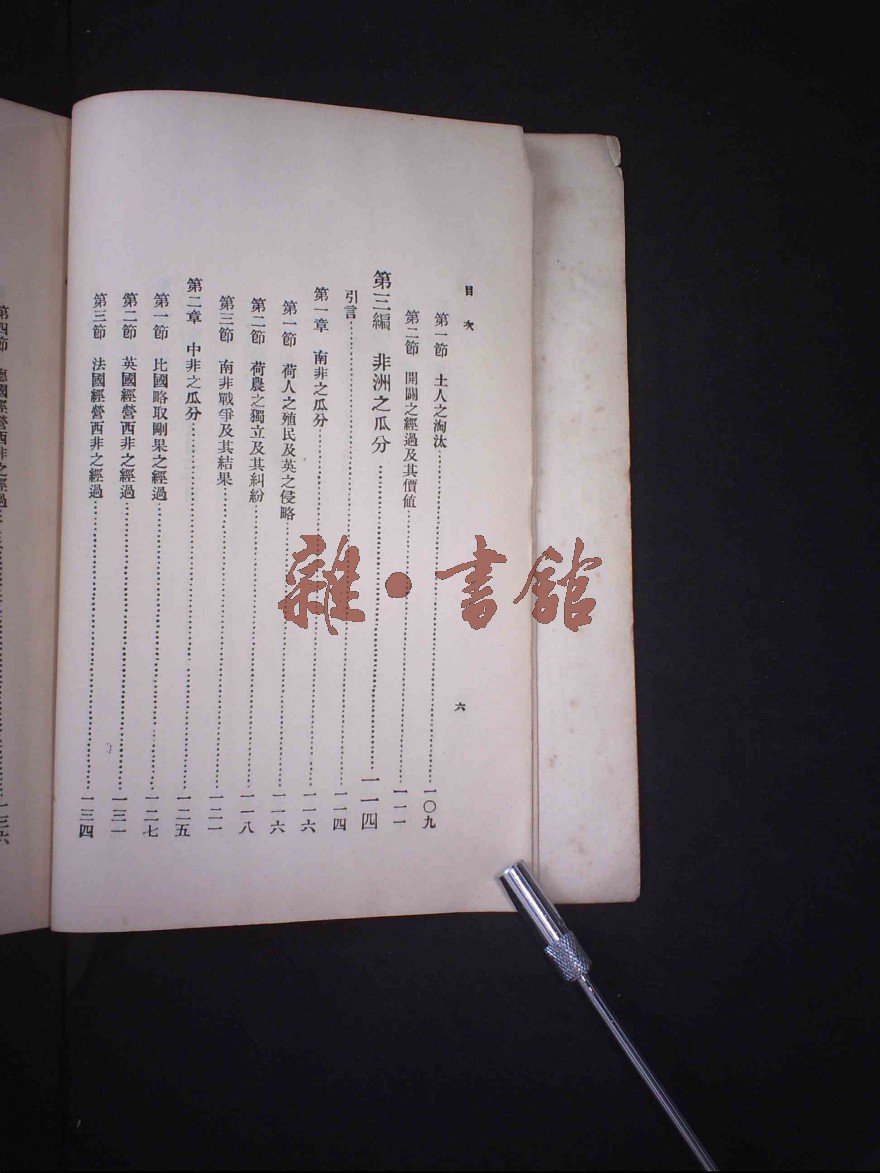 目次
六
第一節 土人之淘汰……一〇九
第二節 開闢之經過及其價値……一一一
第三編 非洲之瓜分……一一四
引言……一一四
第一章 南非之瓜分……一一六
第一節 荷人之殖民及英之侵略……一一六
第二節 荷農之獨立及其糾紛……一一八
第三節 南非戰爭及其結果……一二一
第二章 中非之瓜分……一二五
第一節 比國略取剛果之經過……一二七
第二節 英國經營西非之經過……一三一
第三節 法國經營西非之經過……一三四
第四節 德國經營西非之經過……一三六
雜·書館